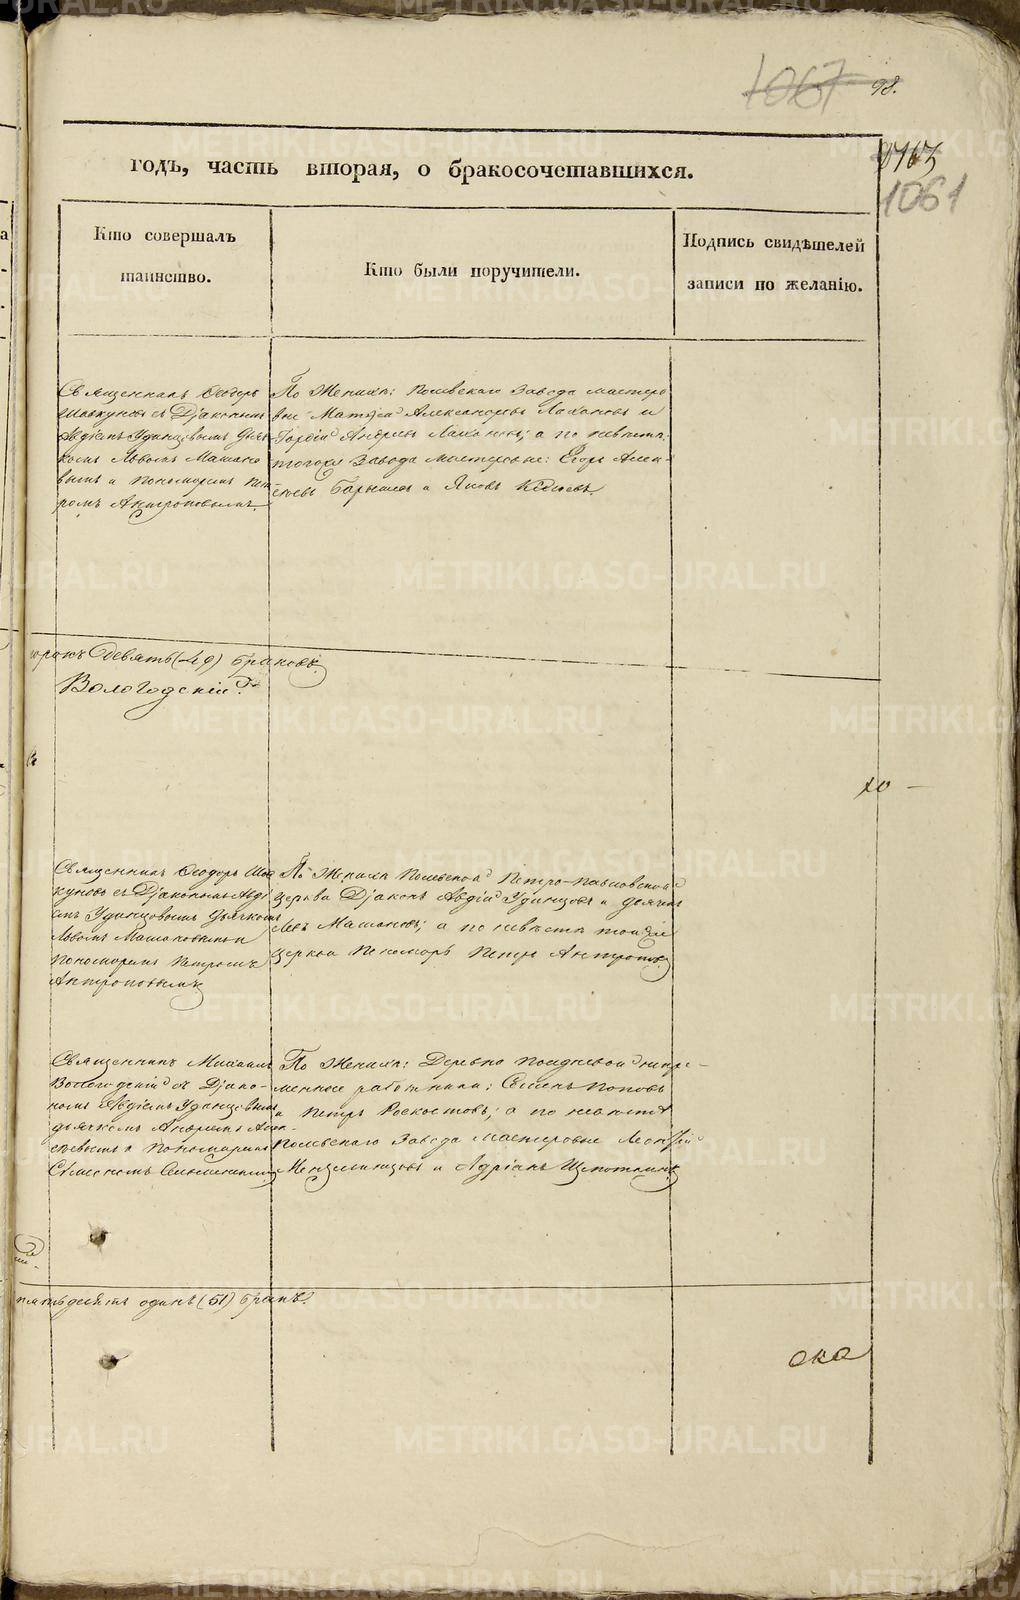 1067 98.
годъ, часть вторая, о бракосочетавшихся.
1061
Кто совершалъ
таинство.
Кто были поручители.
Подпись свидѣтелей
записи по желанію.
Священникъ Ѳеодоръ
съ Діакономъ
Авдіемъ Удинцовымъ Дья-
комъ Львомъ Машано
вымъ и Пономаремъ Пет
ромъ Антроповымъ.
По Женихѣ: Полевскаго Завода мастеро
вые Александровъ и
Гордій Андреевъ а по невѣстѣ
тогоже Завода мастеровые: Егоръ Алек-
сѣевъ и Яковъ
сорокъ девять (49) браковъ.
Вологодскій.
Священникъ Ѳеодоръ Шав
куновъ съ Діакономъ Авді
емъ Удинцовымъ Дьячкомъ
Львомъ Машановымъ и
Пономаремъ Петромъ
Антроповымъ
По Женихѣ Полевской Петро-Павловской
церкви Діаконъ Авдій Удинцовъ и дьячекъ
Левъ Машановъ; а по невѣстѣ той же
церкви Пономарь Петръ Антроповъ.
Священникъ Михаилъ
Вологодскій съ Діако-
номъ Авдіемъ Удинцовымъ
дьячкомъ Андреемъ Алек-
сѣевымъ и Пономаремъ
По Женихѣ: Деревни Полдневой непре-
менные работники: Семенъ Поповъ
и Петръ а по невѣстѣ
Полевскаго Завода Мастеровые Леонтій
и Адріанъ
пятьдесятъ одинъ (51) бракъ.